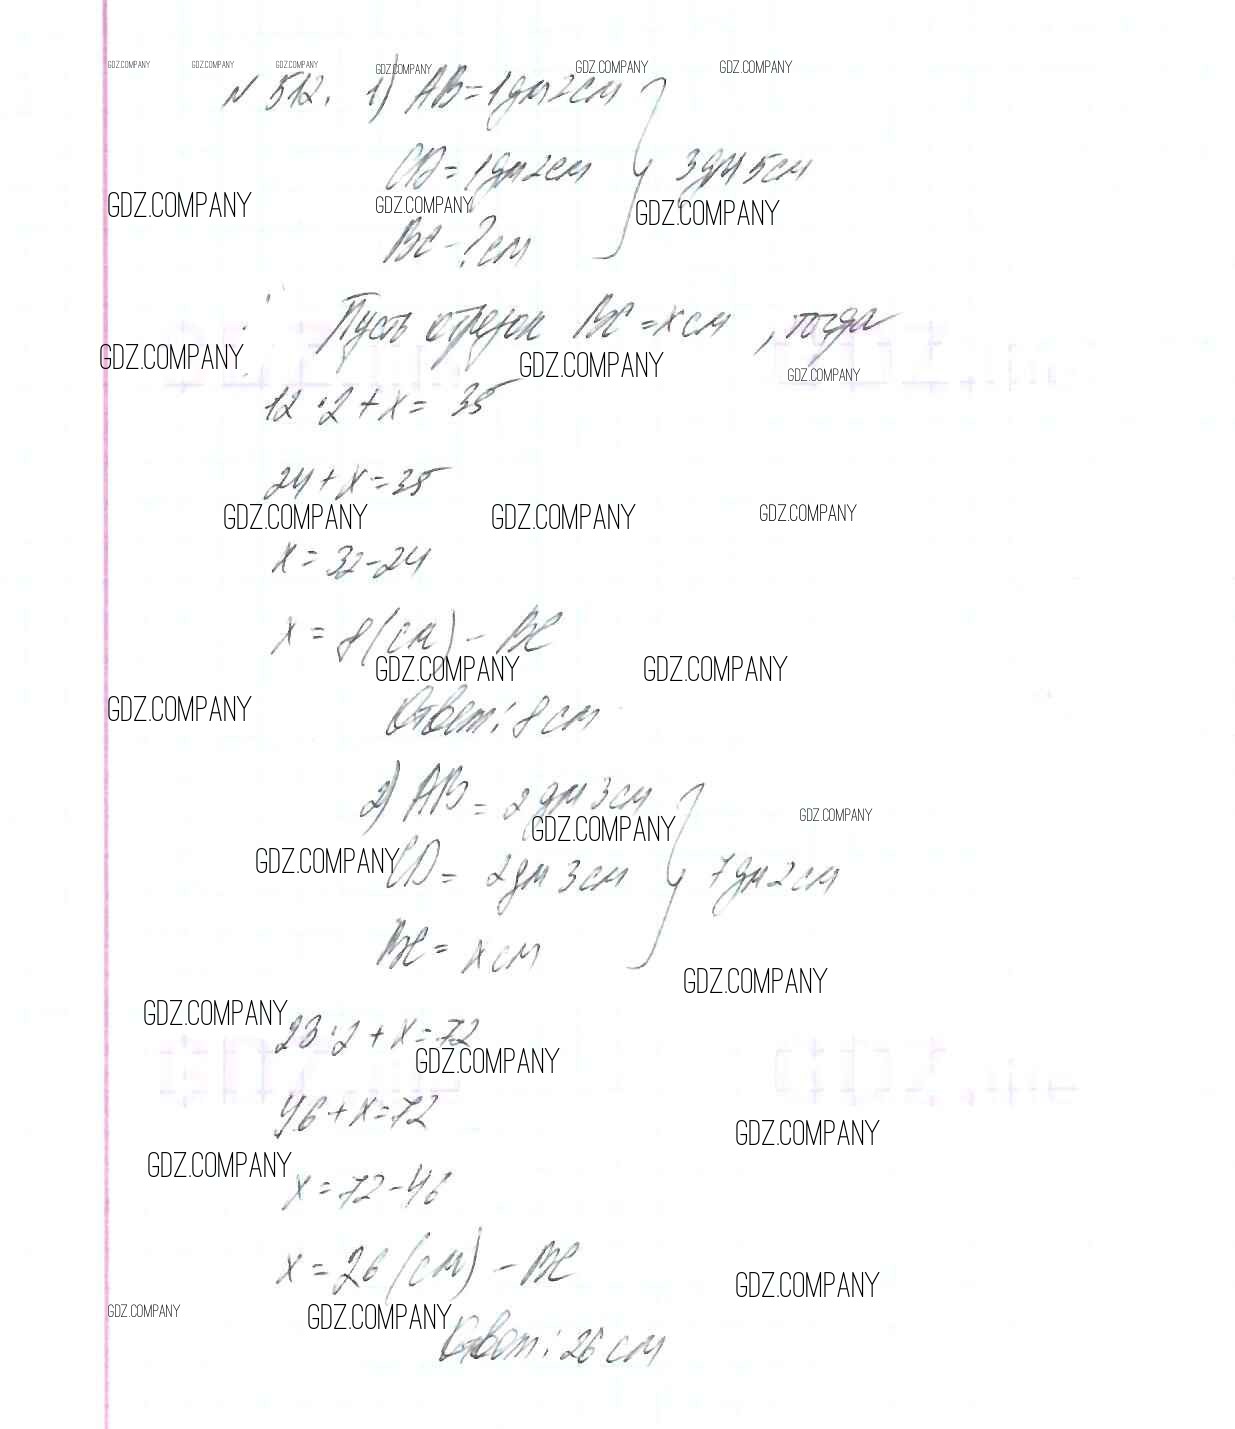 GDZ.COMPANY GDZ.COMPANY GDZ.COMPANY GDZ.COMPANY GDZ.COMPANY GDZ.COMPANY
№ 512. 1) AB = 1 дм 2 см
CD = 1 дм 2 см } 3 дм 5 см
GDZ.COMPANY GDZ.COMPANY GDZ.COMPANY
BC - ? см
Пусть отрезок BC = x см, тогда
GDZ.COMPANY GDZ.COMPANY GDZ.COMPANY
12 · 2 + x = 35
24 + x = 35
GDZ.COMPANY GDZ.COMPANY GDZ.COMPANY
x = 32 - 24
x = 8 (см) - BC
GDZ.COMPANY GDZ.COMPANY
GDZ.COMPANY
Ответ: 8 см
2) AB = 2 дм 3 см
GDZ.COMPANY GDZ.COMPANY
GDZ.COMPANY
CD = 2 дм 3 см } 7 дм 2 см
BC = x см
GDZ.COMPANY
GDZ.COMPANY
23 · 2 + x = 72
GDZ.COMPANY
46 + x = 72
GDZ.COMPANY
GDZ.COMPANY
x = 72 - 46
x = 26 (см) - BC
GDZ.COMPANY
GDZ.COMPANY GDZ.COMPANY
Ответ: 26 см